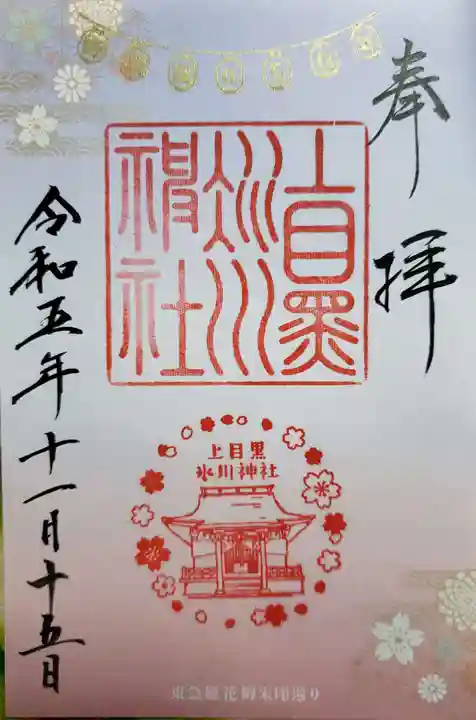 奉拝
上目黒
氷川
神社
上目黒
氷川神社
令和五年十一月十五日
東急線花御朱印巡り